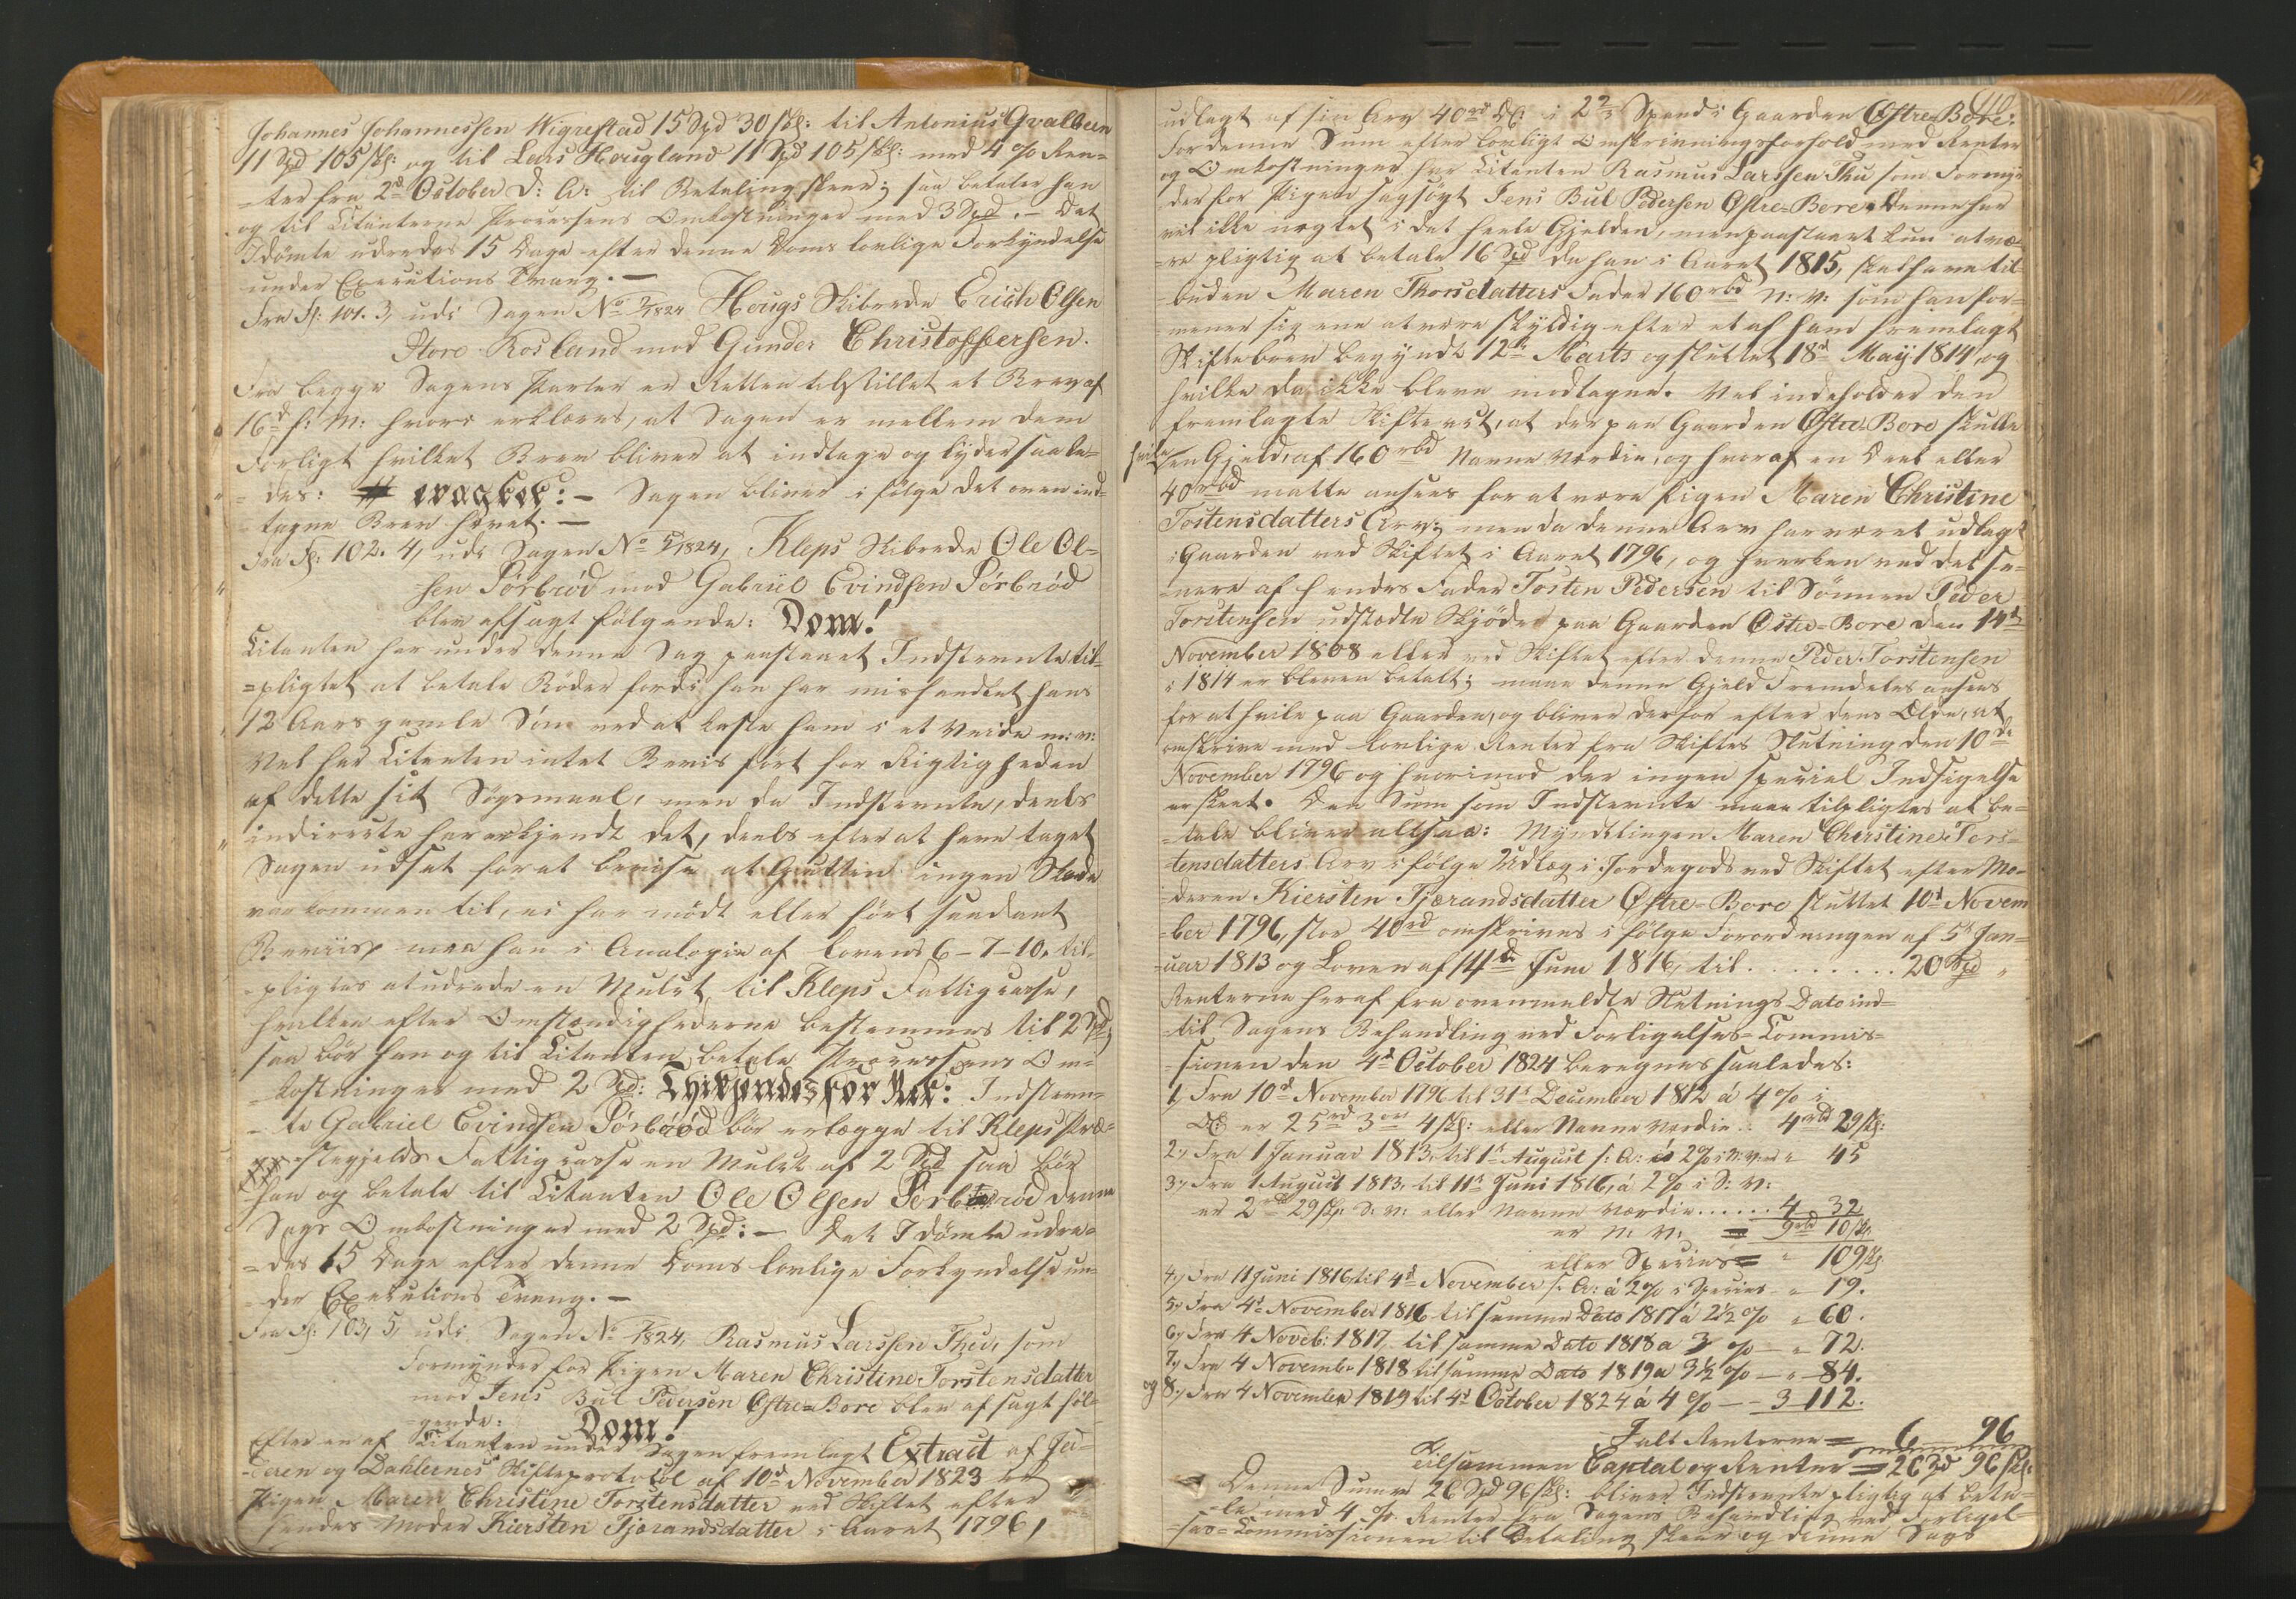 Johannes Johannessen Wigrestad 15 Spd 30 skl: til Antonius Qvalbein
11 Spd 105 skl: og til Lars Hougland 11 Spd 105 skl: med 4 % Ren=
=ter fra 2d October d: A: til Betaling skeer; saa betaler han
og til Citanterne Processens Omkostninger med 3 Spd. – Det
Idømte udredes 15 Dage efter denne Doms lovlige Forkyndelse
under Executions Tvang. –
Fra Fol: 101. 3, udi Sagen No 2/1824 Hougs Skibrede Erich Olsen
Store Rosland mod Gunder Christoffersen.
Fra begge Sagens Parter er Retten tilstillet et Brev af
16d f: M: hvori erklæres, at Sagen er mellem dem
Forligt hvilket Brev bliver at indtage og lyder saale=
=des: – Sagen bliver i følge det oven ind=
tagne Brev hævet. –
Fra Fol: 102. 4, udi Sagen No 5/1824, Kleps Skibrede Ole Ol=
sen Pörbröd mod Gabriel Evindsen Pörbröd
blev afsagt følgende: Dom!
Citanten har under denne Sag paastaaet Indstevnte til=
=pligtet at betale Bøder fordi han har mishandlet hans
12 Aars gamle Søn ved at kaste ham i et Veide m: v:
Vel har Citanten intet Bevis ført for Rigtigheden
af dette sit Søgsmaal, men da Indstevnte, deels
indirecte har erkjendt det, deels efter at have taget
Sagen udsat for at bevise at Gutten ingen Skade
var kommen til, ei har mødt eller ført saadant
Beviis, maa han i Analogie af Lovens 6–7–10. til=
pligtes at udrede en Mulct til Kleps Fattigcasse,
hvilken efter Omstændighederne bestemmes til 2 Spd,
saa bør han og til Citanten betale Processens Om=
kostninger med 2 Spd: Thi kjendes for Ret: Indstevn=
=te Gabriel Evindsen Pörbröd bør erlægge til Kleps Præ=
stegjelds Fattigcasse en Mulct af 2 Spd saa bør
han og betale til Citanten Ole Olsen Pörbröd denne
Sags Omkostninger med 2 Spd: – Det Idømte udre=
=des 15 Dage efter denne Doms lovlige Forkyndelse un=
der Executions Tvang. –
Fra Fol: 103, 5, udi Sagen No /1824, Rasmus Larssen Thu, som
Formynder for Pigen Maren Christine Torstensdatter
mod Jens Bul Pedersen Østre=Bore blev afsagt føl=
gende: Dom!
Efter en af Citanten under Sagen fremlagt Extract af Jæ=
=deren og Dahlernes Skifteprotokol af 10d November 1823 er
Pigen Maren Christine Torstensdatter ved Skiftet efter
hendes Moder Kiersten Tjærandsdatter i Aaret 1796,
110.
udlagt af sin Arv 40 rd DC: i 2 2/3 Spand i Gaarden Østre=Bore.
For denne Sum efter lovligt Omskrivningsforhold med Renter
og Omkostninger har Citanten Rasmus Larssen Thu som Formyn
der for Pigen sagsøgt Jens Bul Pedersen Østre=Bore. Denne har
vel ikke nægtet i det heele Gjelden, men paastaaet kun at væ=
=re pligtig at betale 16 Spd da han i Aaret 1815, skal have til
buden Maren Thorsdatters Fader 160 rbd N: V: som han for=
mener sig ene at være skyldig efter et af ham fremlagt
Skiftebrev begyndt 12te Marts og sluttet 18d May 1814, og
hvilke da ikke bleve modtagne. Vel indeholder den
fremlagte Skifteact, at der paa Gaarden Østre Bore skulle
hvile en Gjeld af 160 rbd Navne Værdie, og hvoraf en Deel eller
40 rbd maatte ansees for at være Pigen Maren Christine
Tostensdatters Arv; men da denne Arv har været udlagt
i Gaarden ved Skiftet i Aaret 1796, og hverken ved det se=
nere af hendes Fader Tosten Pedersen til Sønnen Peder
Torstensen udstædte Skjøde paa Gaarden Østre=Bore den 14d
November 1808 eller ved Skiftet efter denne Peder Torstensen
i 1814 er bleven betalt; maa denne Gjeld Fremdeles ansees
for at hvile paa Gaarden, og bliver derfor efter dens Ælde, at
omskrive med lovlige Renter fra Skiftes Slutning den 10de
November 1796 og hvorimod der ingen speciel Indsigelse
er skeet. Den Sum som Indstevnte maa tilpligtes at be=
=tale bliver altsaa: Myndtlingen Maren Christine Tors=
tensdatters Arv i følge Udlæg i Jordegods ved Skiftet efter Mo=
=deren Kiersten Tjærandsdatter Østre=Bore sluttet 10d Novem
=ber 1796, stor 40 rd omskrives i følge Forordningen af 5t Jan=
=uar 1813 og Loven af 14de Juni 1816, til . . . . . . . . . 20 Spd "
Renterne heraf fra ovenmeldte Slutnings Dato ind=
=til Sagens Behandling ved Forligelses=Commis=
=sionen den 4d October 1824 beregnes saaledes:
1, Fra 10d November 1796 til 31t December 1812 á 4 % i
DC er 25 rd 3 ort 4 skl: eller Navne Værdie . . 4 rbd 29 skl:
2., Fra 1 Januar 1813. til 1t August s: A: á 2% i N: V: er " 45
3., Fra 1 August 1813. til 11t Juni 1816, á 2 % i S: V:
er 2 rbd 29 skl: S: V: eller Navne Værdie . . . . . . 4 32
er N: V: = 9 rbd 10 skl
eller Species = " 109 skl
4., Fra 11 Juni 1816 til 4d November s: A: á 2 % i Species – " 19.
5., Fra 4d November 1816 til samme Dato 1817 á 2 1/2 % " 60.
6., Fra 4 Noveb: 1817 til samme Dato 1818 a 3 % – " 72.
7., Fra 4 November 1818 til samme Dato 1819 a 3 1/2 % – " 84.
og 8., Fra 4 November 1819 til 4d October 1824 á 4 % – – 3 112.
I alt Renterne = 6 96
Tilsammen Captal og Renter = 26 Spd 96 skl:
Denne Summa 26 Spd 96 skl: bliver Indstevnte pligtig at beta=
=le med 4 % Renter fra Sagens Behandling ved Forligel=
=ses=Commissionen til Betaling skeer og denne Sags